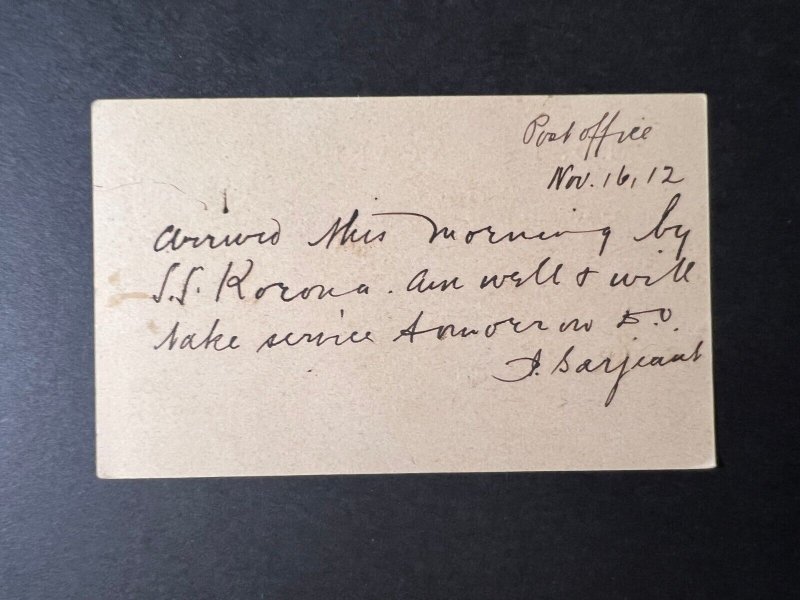 Post office
Nov. 16, 12
arrived this morning by
S.S. Korona. am well & will
take service tomorrow D.V.
J. Sarjeant